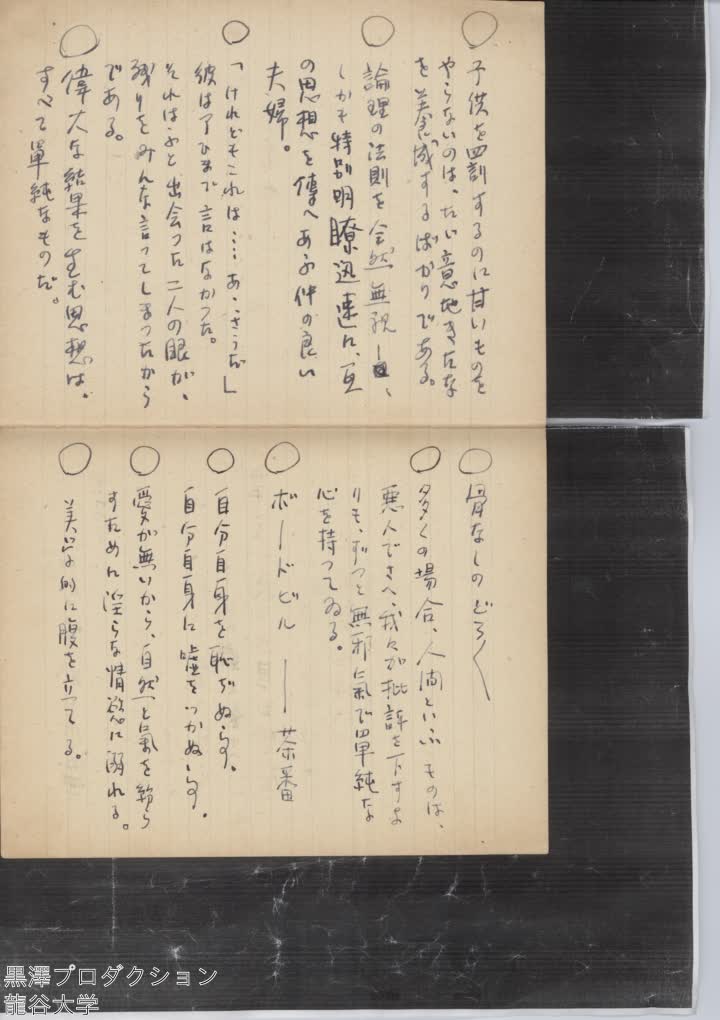 ○
子供を四訓するのに甘いものを
やらないのは、たい意地きたな
を養成するばかりである。
○
論理の法則を全然無視し、
しかも特別明瞭迅速に、互
の思想を傳へあふ仲の良い
夫婦。
○
「けれどもこれは……あ、さうだ」
彼は了ひまで言はなかつた。
それはふと出会つた二人の眼が、
残りをみんな言つてしまつたから
である。
○
偉大な結果を生む思想は、
すべて單純なものだ。
○
骨なしのどろ〱
○
多くの場合、人間といふものは、
悪人でさへ、我々が批評を下すよ
りも、ずつと無邪氣で單純な
心を持つてゐる。
○
ボードビル ー 茶番
○
自分自身を恥ぢぬらす。
自分自身に嘘をつかぬらす。
○
愛が無いから、自然と氣を紛ら
すために淫らな情慾に溺れる。
○
美的に腹を立てる。
黒澤プロダクション
龍谷大学